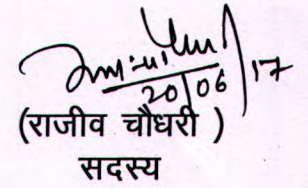 20/06/17
(राजीव चौधरी )
सदस्य